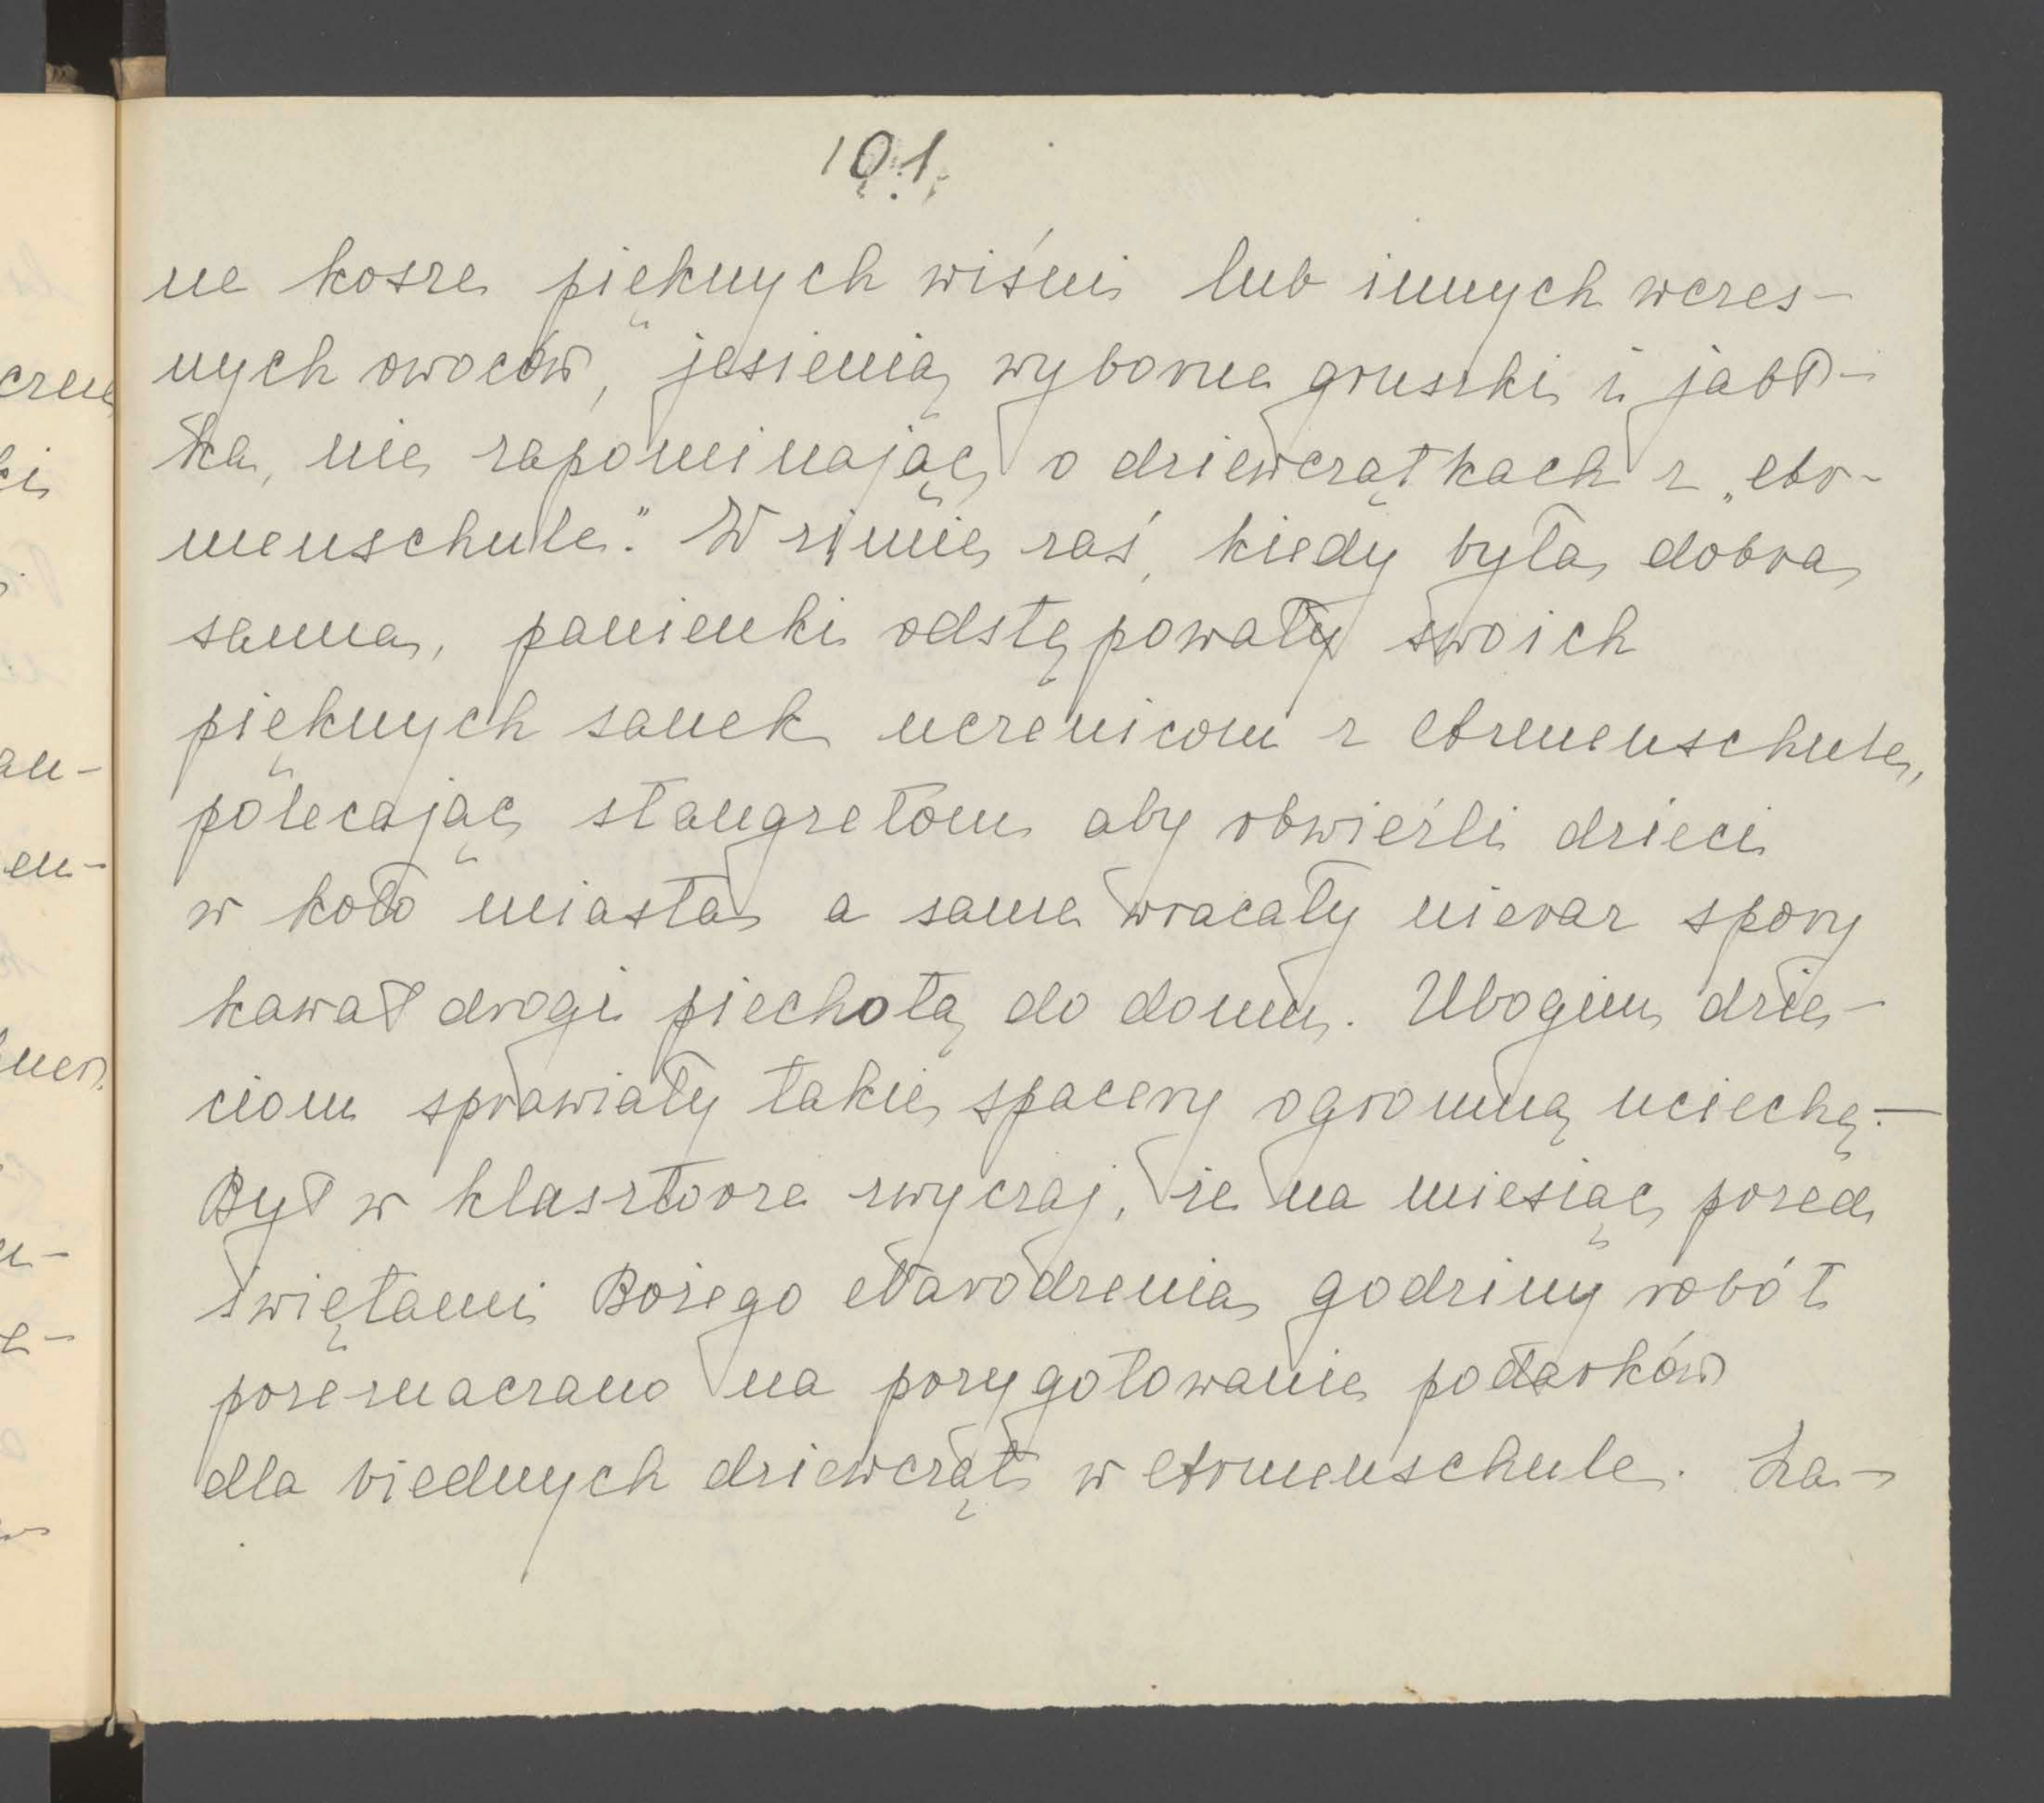 101.
ne kosze pięknych wiśni lub innych wczes-
nych owoców, jesienią wyborne gruszki i jabł-
ka, nie zapominając o dziewczątkach z „Ar-
menschule." W zimie zaś, kiedy była dobra
sanna, panienki odstępowały swoich
pięknych sanek uczenicom z Armenschule,
polecając stangretom aby obwieźli dzieci
w koło miasta a same wracały nieraz spory
kawał drogi piechotą do domu. Ubogim dzie-
ciom sprawiały takie spacery ogromną uciechę. —
Był w klasztorze zwyczaj, że na miesiąc przed
świętami Bożego Narodzenia godziny robót
przeznaczano na przygotowanie podarków
dla biednych dziewcząt w Armenschule. Za-
czne
ki
an-
en-